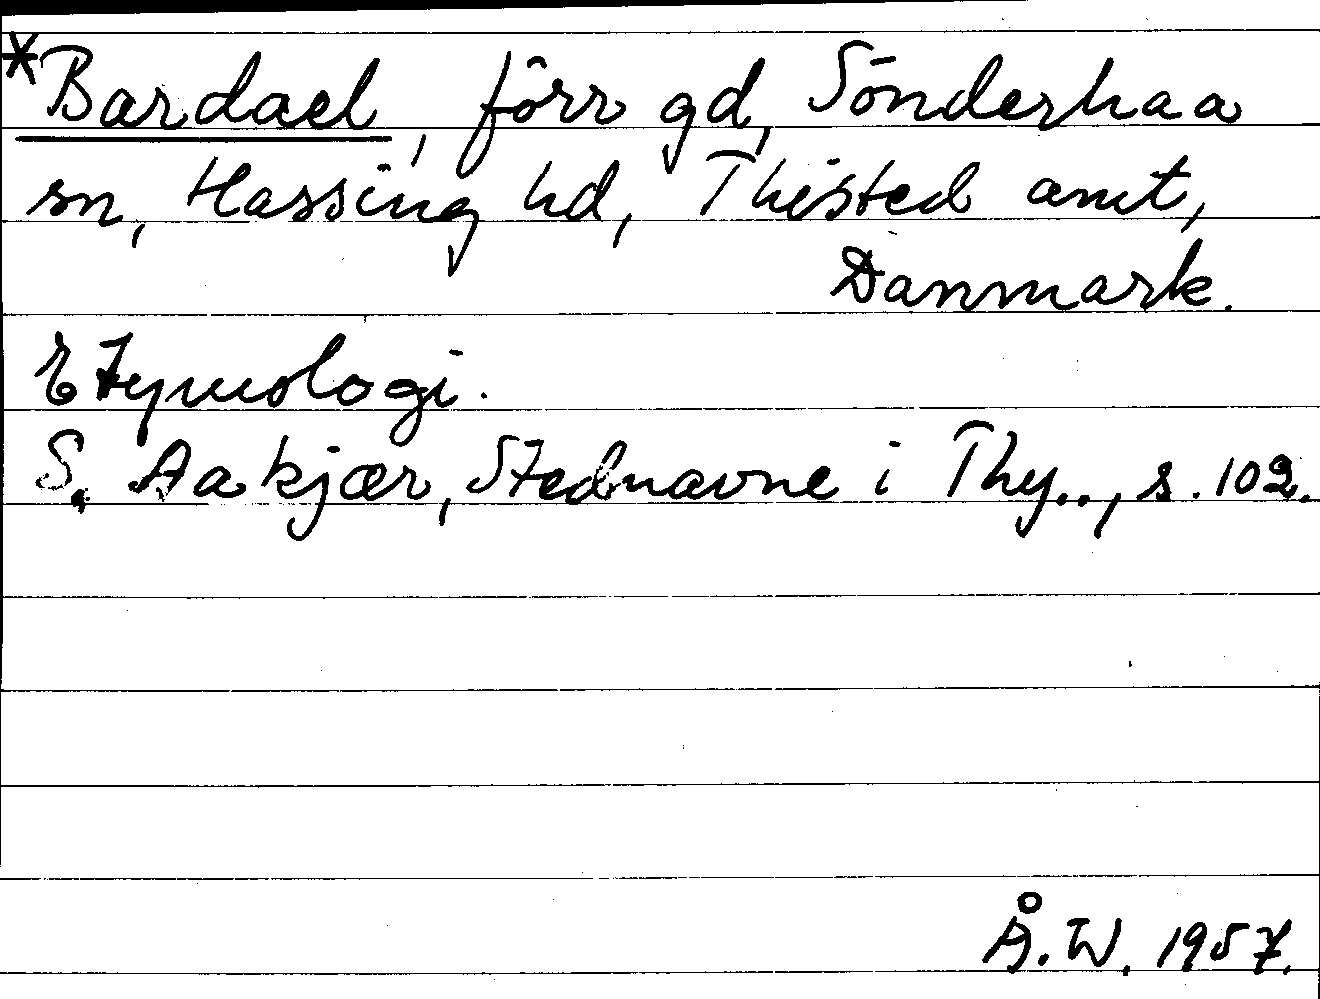 *Bardael, förr gd, Sönderhaa
sn, Hassing hd, Thisted amt,
Danmark.
Etymologi.
S. Aakjær, Stednavne i Thy.., s. 102.
Å.W. 1957.